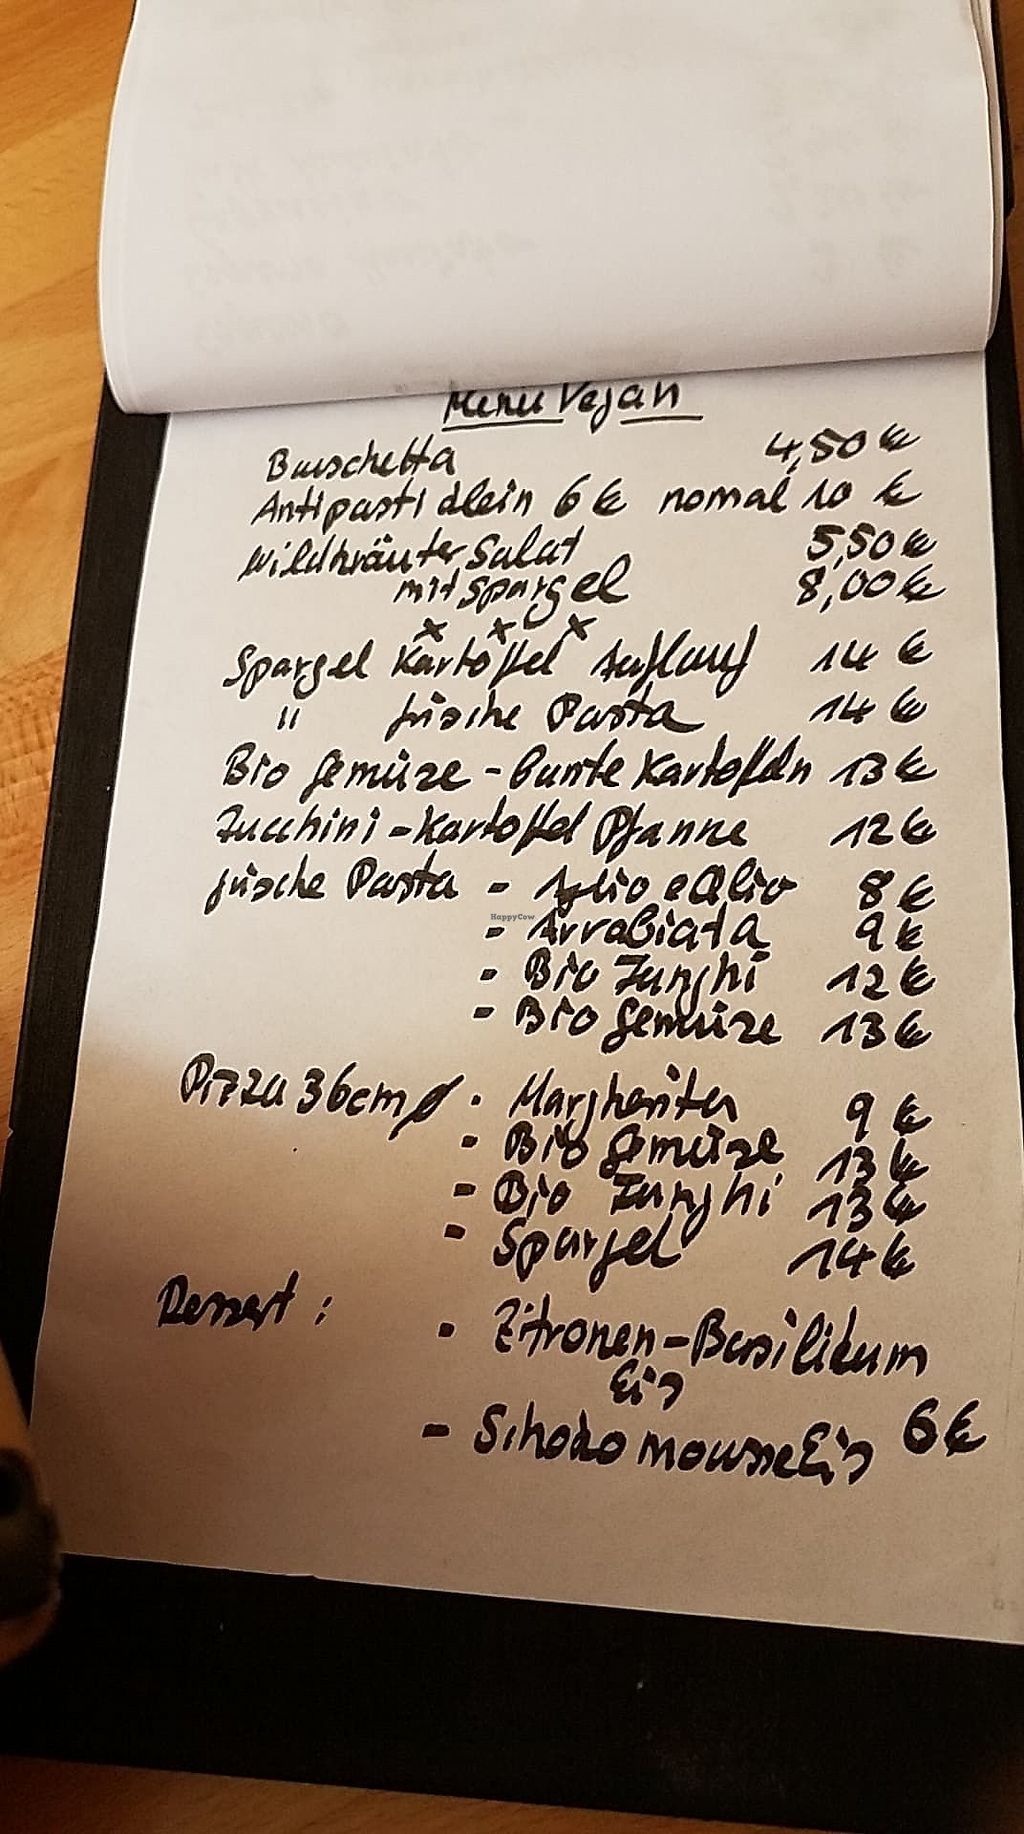 Menü Vegan
Bruschetta 4,50 €
Antipasti klein 6 € normal 10 €
Wildkräuter Salat 5,50 €
mit Spargel 8,00 €
x x x
Spargel Kartoffel Auflauf 14 €
" frische Pasta 14 €
Bio Gemüze - bunte Kartoffeln 13 €
Zucchini - Kartoffel Pfanne 12 €
frische Pasta - Aglio e Olio 8 €
HappyCow
- Arrabiata 9 €
- Bio Funghi 12 €
- Bio Gemüze 13 €
Pizza 36cm ø - Margherita 9 €
- Bio Gemüze 13 €
- Bio Funghi 13 €
- Spargel 14 €
Dessert : - Zitronen-Basilikum
Eis
- Schoko mousse Eis 6 €